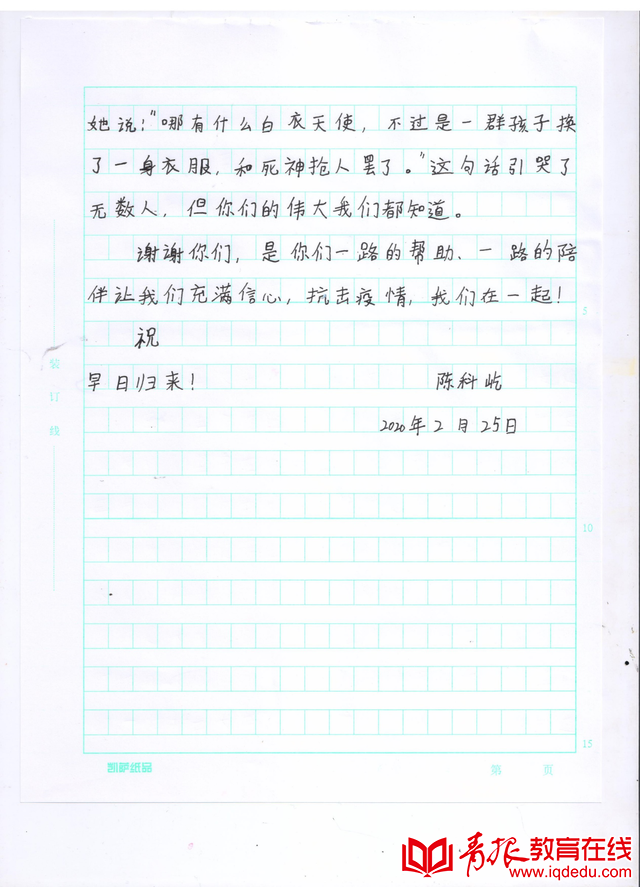 她说：“哪有什么白衣天使，不过是一群孩子换
了一身衣服，和死神抢人罢了。”这句话引哭了
无数人，但你们的伟大我们都知道。
谢谢你们，是你们一路的帮助、一路的陪
伴让我们充满信心，抗击疫情，我们在一起！
祝
早日归来！
陈科屹
2020年2月25日
5
10
15
装订线
凯萨纸品
第 页
青报教育在线
www.iqdedu.com